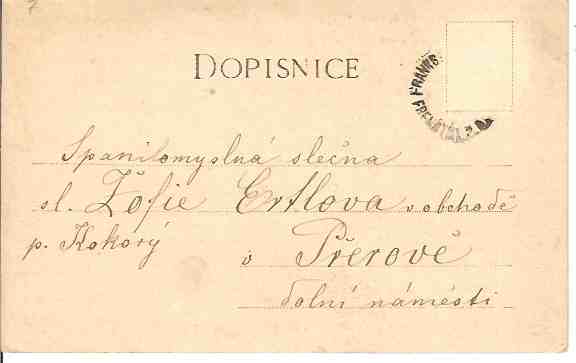 7
DOPISNICE
FRANKS
Spanilomyslná slečna
sl. Žofie Ertlova v obchodě
p. Kokorý v Přerově
dolní náměstí